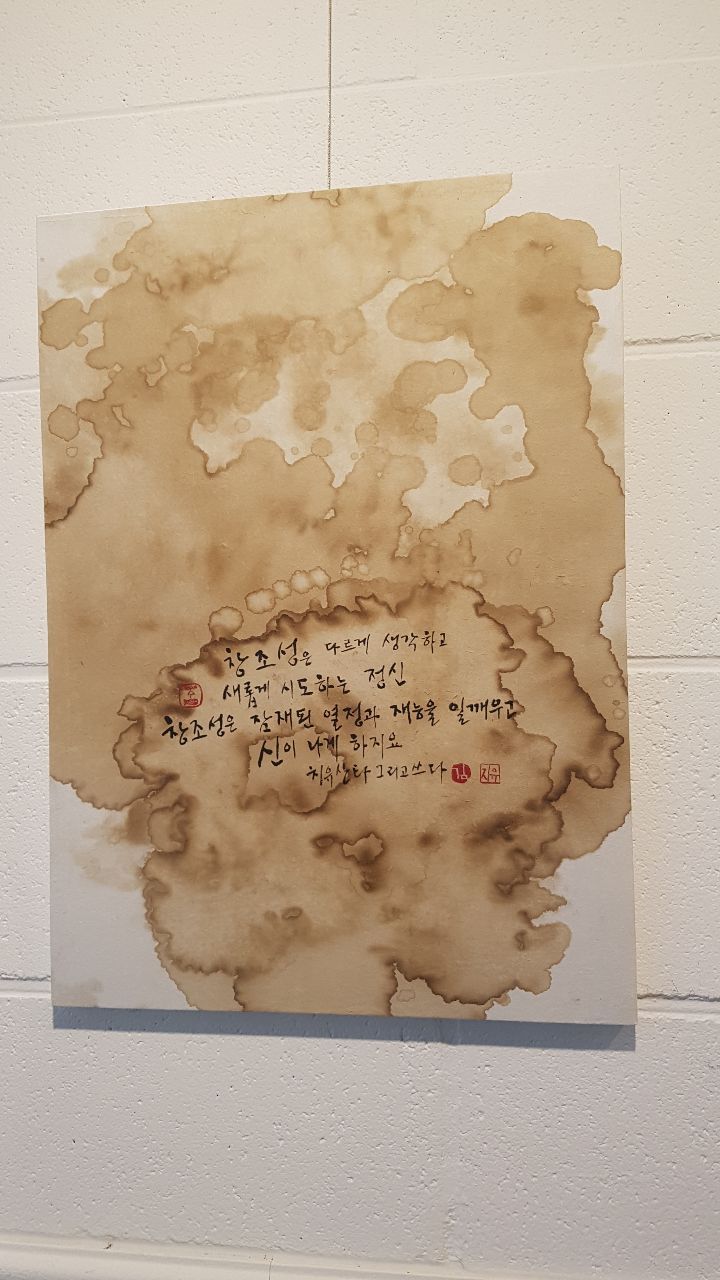 창조성은 다르게 생각하고
새롭게 시도하는 정신
창조성은 잠재된 열정과 재능을 일깨우고
신이 나게 하지요
치유산타 그리고쓰다 김 치유